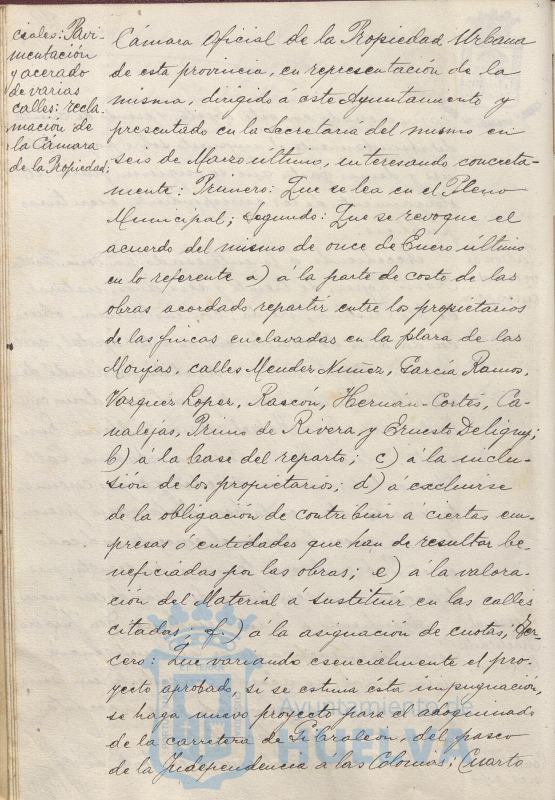 ciales: Pavi-
mentación
y acerado
de varias
calles: recla-
mación de
la Cámara
de la Propiedad;
Cámara Oficial de la Propiedad Urbana
de esta provincia, en representación de la
misma, dirigido á éste Ayuntamiento y
presentado en la Secretaría del mismo en
seis de Marzo último, interesando concreta-
mente: Primero: Que se lea en el Pleno
Municipal; Segundo: Que se revoque el
acuerdo del mismo de once de Enero último
en lo referente a) á la parte de costo de las
obras acordado repartir entre los propietarios
de las fincas enclavadas en la plaza de las
Monjas, calles Mendez Nuñez, García Ramos,
Vazquez Lopez, Rascón, Hernán-Cortés, Ca-
nalejas, Primo de Rivera y Ernesto Deligny;
b) á la base del reparto; c) á la inclu-
sión de los propietarios; d) á excluirse
de la obligación de contribuir á ciertas em-
presas ó entidades que han de resultar be-
neficiadas por las obras; e) á la valora-
ción del Material á sustituir en las calles
citadas f.) á la asignación de cuotas; Ter-
cero: Que variando esencialmente el pro-
yecto aprobado, si se estima ésta impugnación,
se haga nuevo proyecto para el adoquinado
de la carretera de Gibraleón, del paseo
de la Independencia a las Colonias; Cuarto
Ayuntamiento de
HUELVA